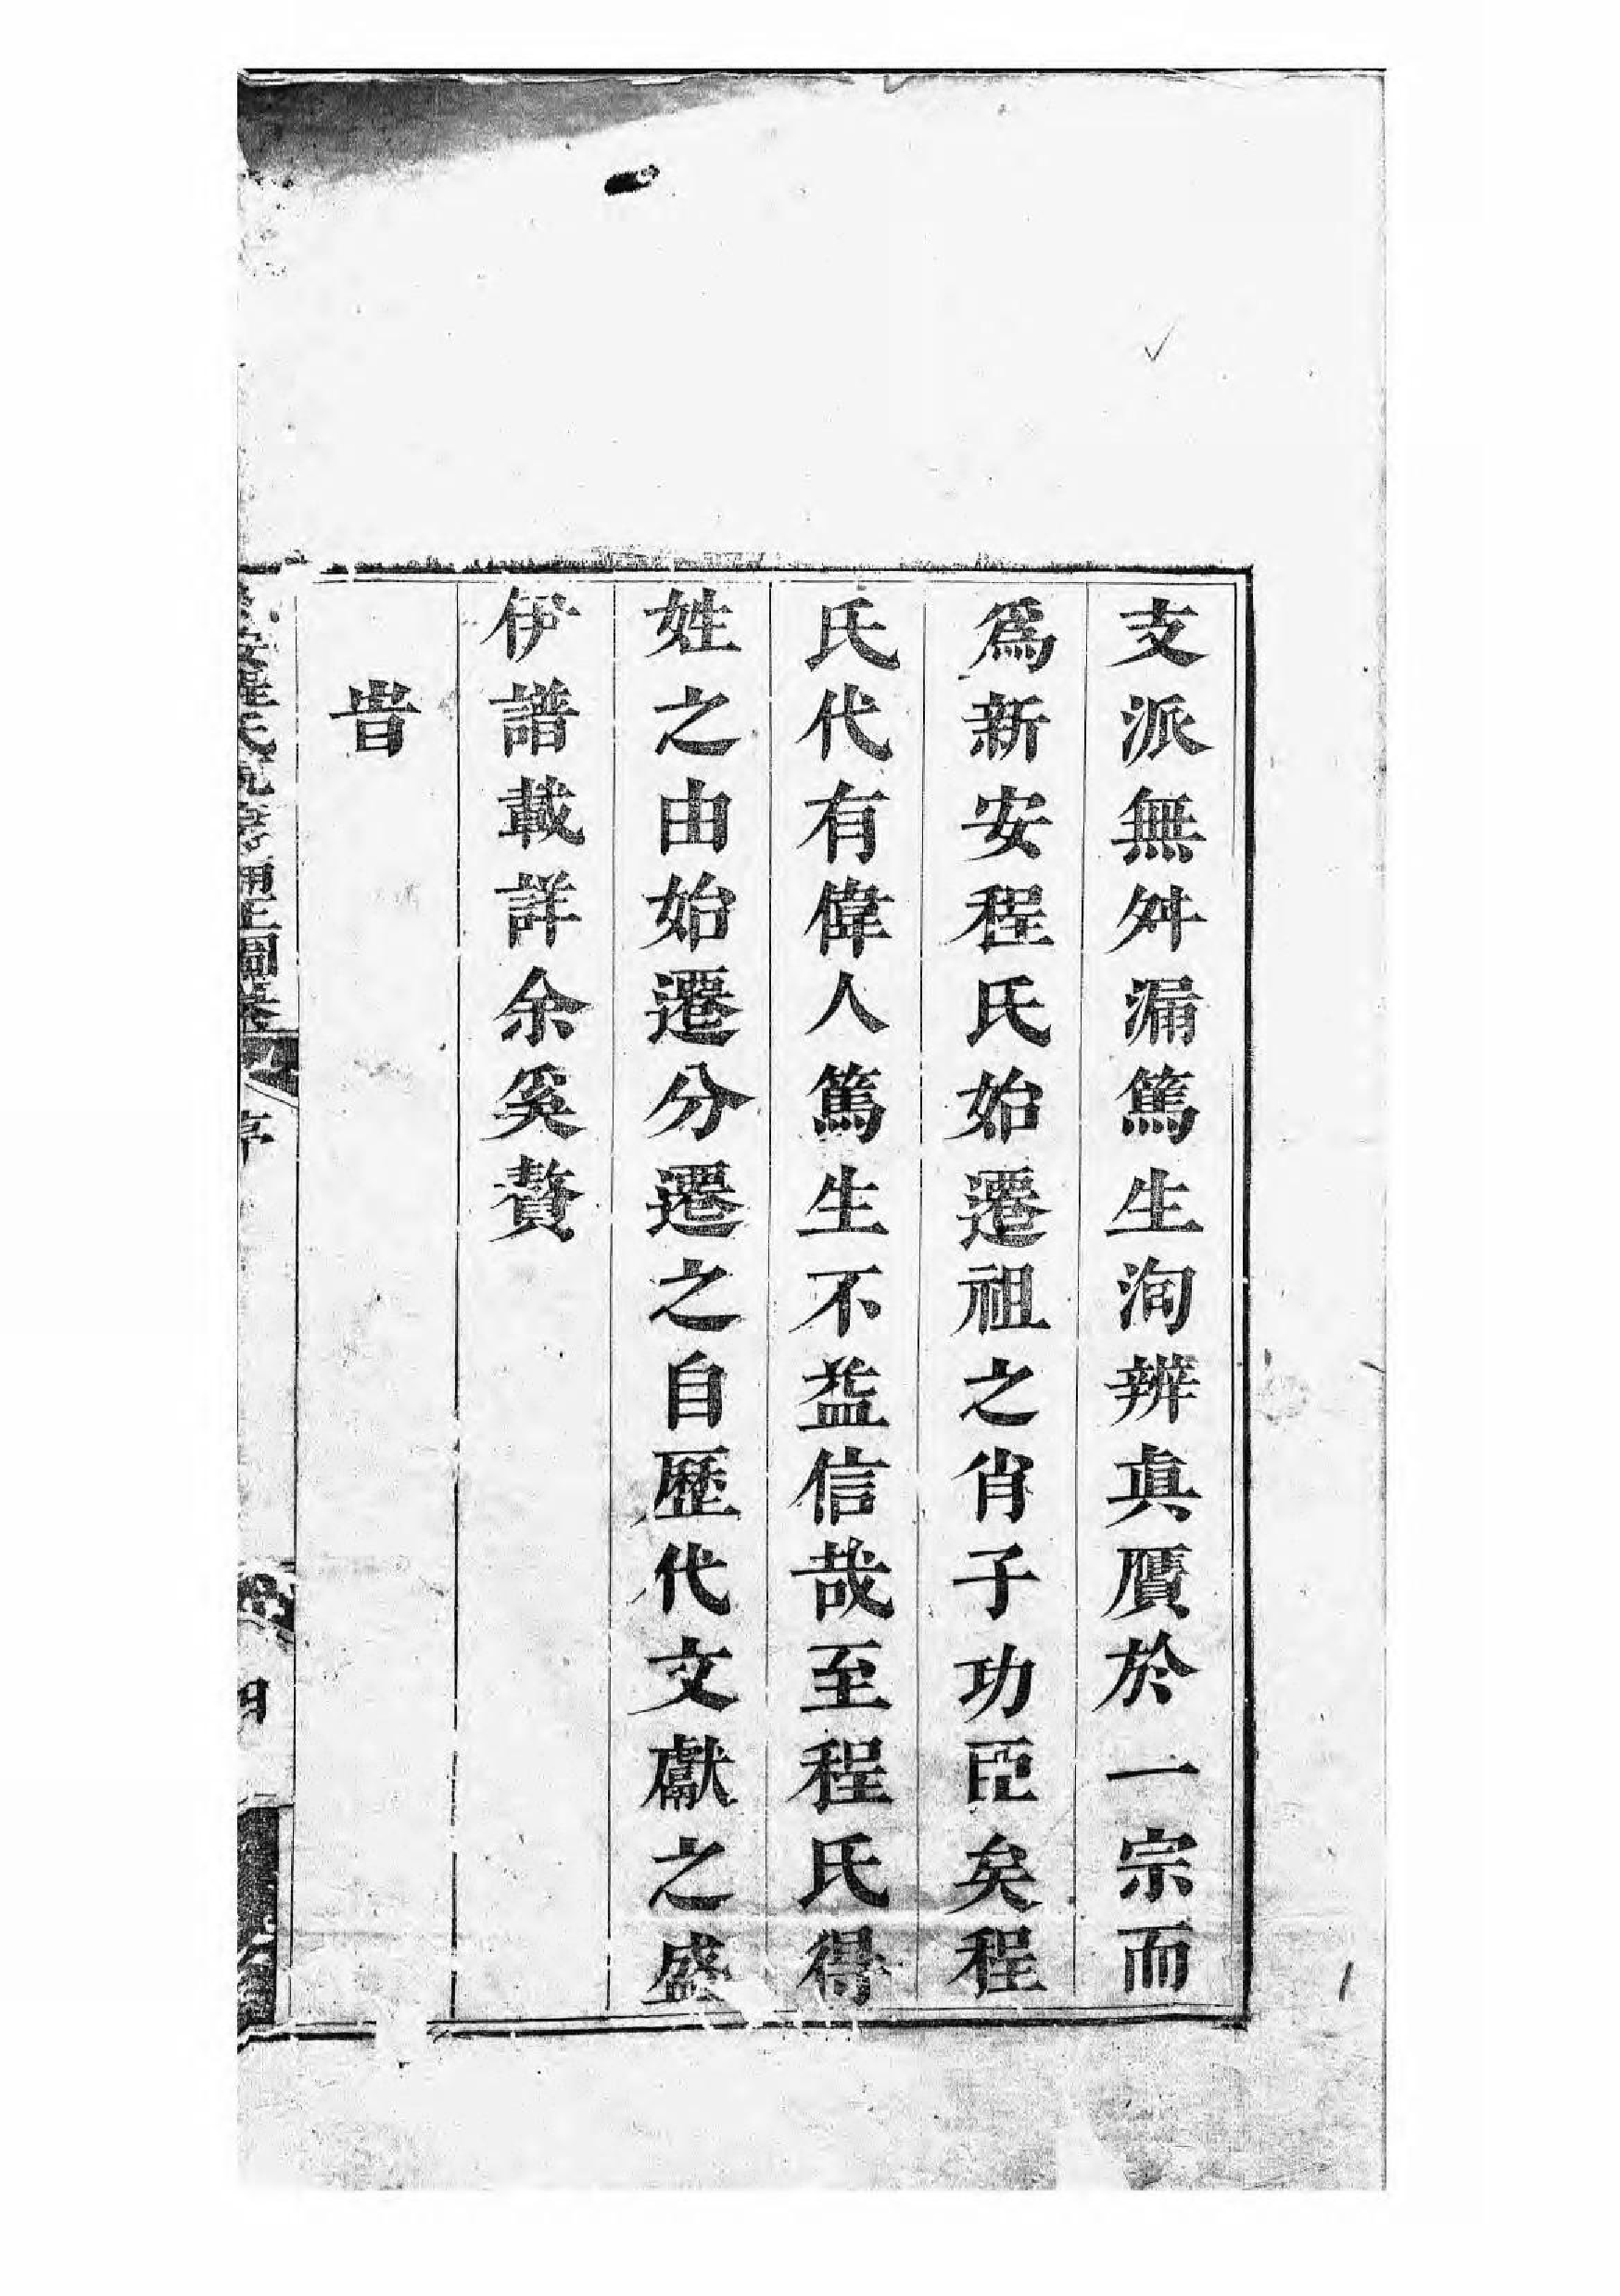 支派無舛漏篤生洵辨真贋於一宗而
為新安程氏始遷祖之肖子功臣矣程
氏代有偉人篤生不益信哉至程氏得
姓之由始遷分遷之自歷代文獻之盛
伊譜載詳余奚贅
旹
安程氏統宗通正圖纂
序
四